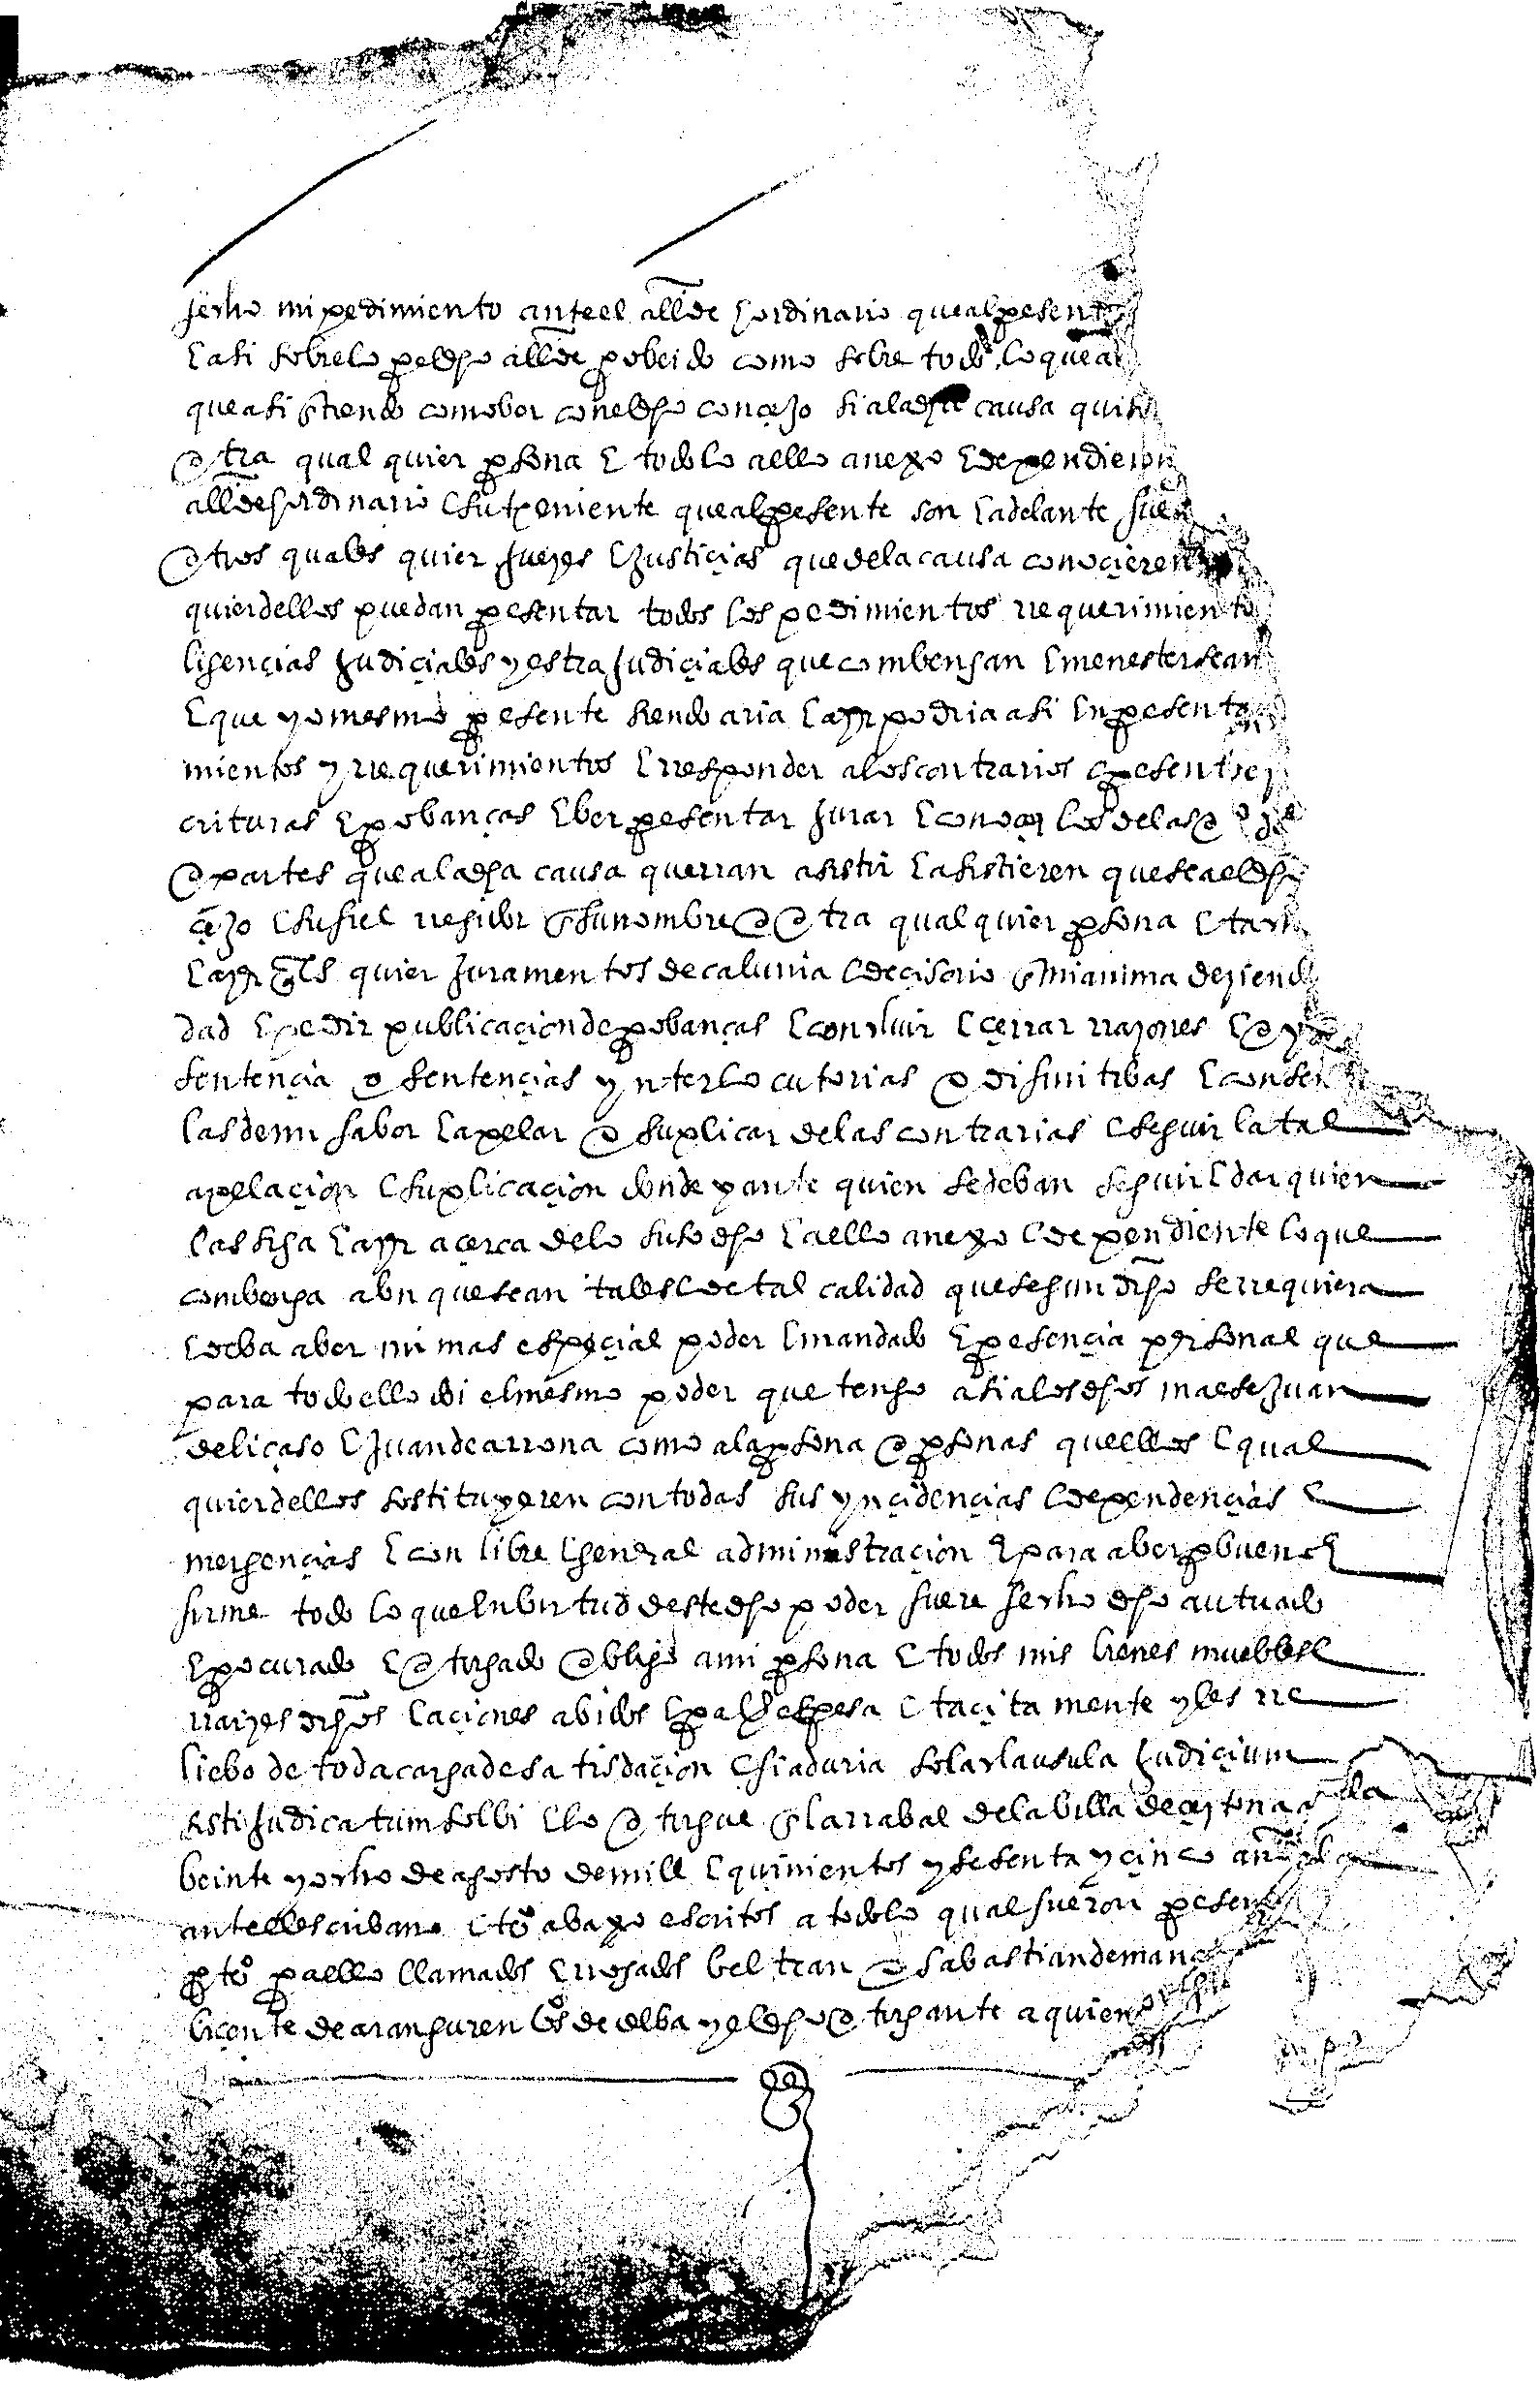 fecho mi pedimiento ante el allde hordinario que al presente
E asi sobre lo por el dho allde probeido como sobre todo lo que a
que asistiendo como bor con el dho conçejo si a la dha causa quis
otra qual quier persona E todo lo a ello anexo E dependien
allde hordinario E su teniente que al presente son E adelante fue
otros quales quier Juezes E Justiçias que de la causa conoçieren
quier dellos puedan presentar todos los pedimientos rrequerimiento
ligençias Judiçiales y estra Judiçiales que combengan E menester sean
E que yo mesmo presente siendo aria E azer podria asi En presentar
mientos y rrequerimientos E rresponder a los contrarios E presentar es
crituras E probanças E ber presentar Jurar E conoçer los de las
o partes que a la dha causa querran asistir E asistieren que sea el dho
çejo E su fiel rregidor En su nombre o otra qual quier persona E tach
E azer qles quier Juramentos de calunia E deçisorio En mi anima deziend
dad E pedir publicaçion de probanças E concluir E çerrar rrazones E oyr
sentençia o sentençias ynterlocutorias o difinitibas E consen
las de mi fabor E apelar o suplicar de las contrarias E seguir la tal
apelaçion E suplicaçion donde y ante quien se deban seguir E dar quien
las siga E azer açerca de lo suso dho E a ello anexo E dependiente lo que
combenga abn que sean tales E de tal calidad que segun drho se rrequiera
E deba aber mi mas espeçial poder E mandado E presençia personal que
para todo ello doi el mesmo poder que tengo asi a los dhos maese Juan
de liçaso E Juan de arrona como a la persona o personas quellos E qual
quier dellos sostituyeren con todas sus ynçidençias E dependençias E
mergençias E con libre E general administraçion E para aber por bueno E
firme todo lo que En birtud deste dho poder fuere fecho dho autuado
E procurado E otorgado obligo a mi persona E todos mis bienes muebles E
rraizes drhos E açiones abidos E por aber espresa E taçita mente y les rre
liebo de toda carga de satisdaçion E fiaduria so la clausula Judiçium
sisti Judicatum solbi E lo otorgue En el arrabal de la billa de çestona a
beinte y ocho de agosto de mill E quinientos y sesenta y çinco años
ante el escribano E to abaxo escritos a todo lo qual fueron presen
por to para ello llamados E rrogados beltran o sabastian de
biçente de aranguren bos de deba y el dho otorgante a quien